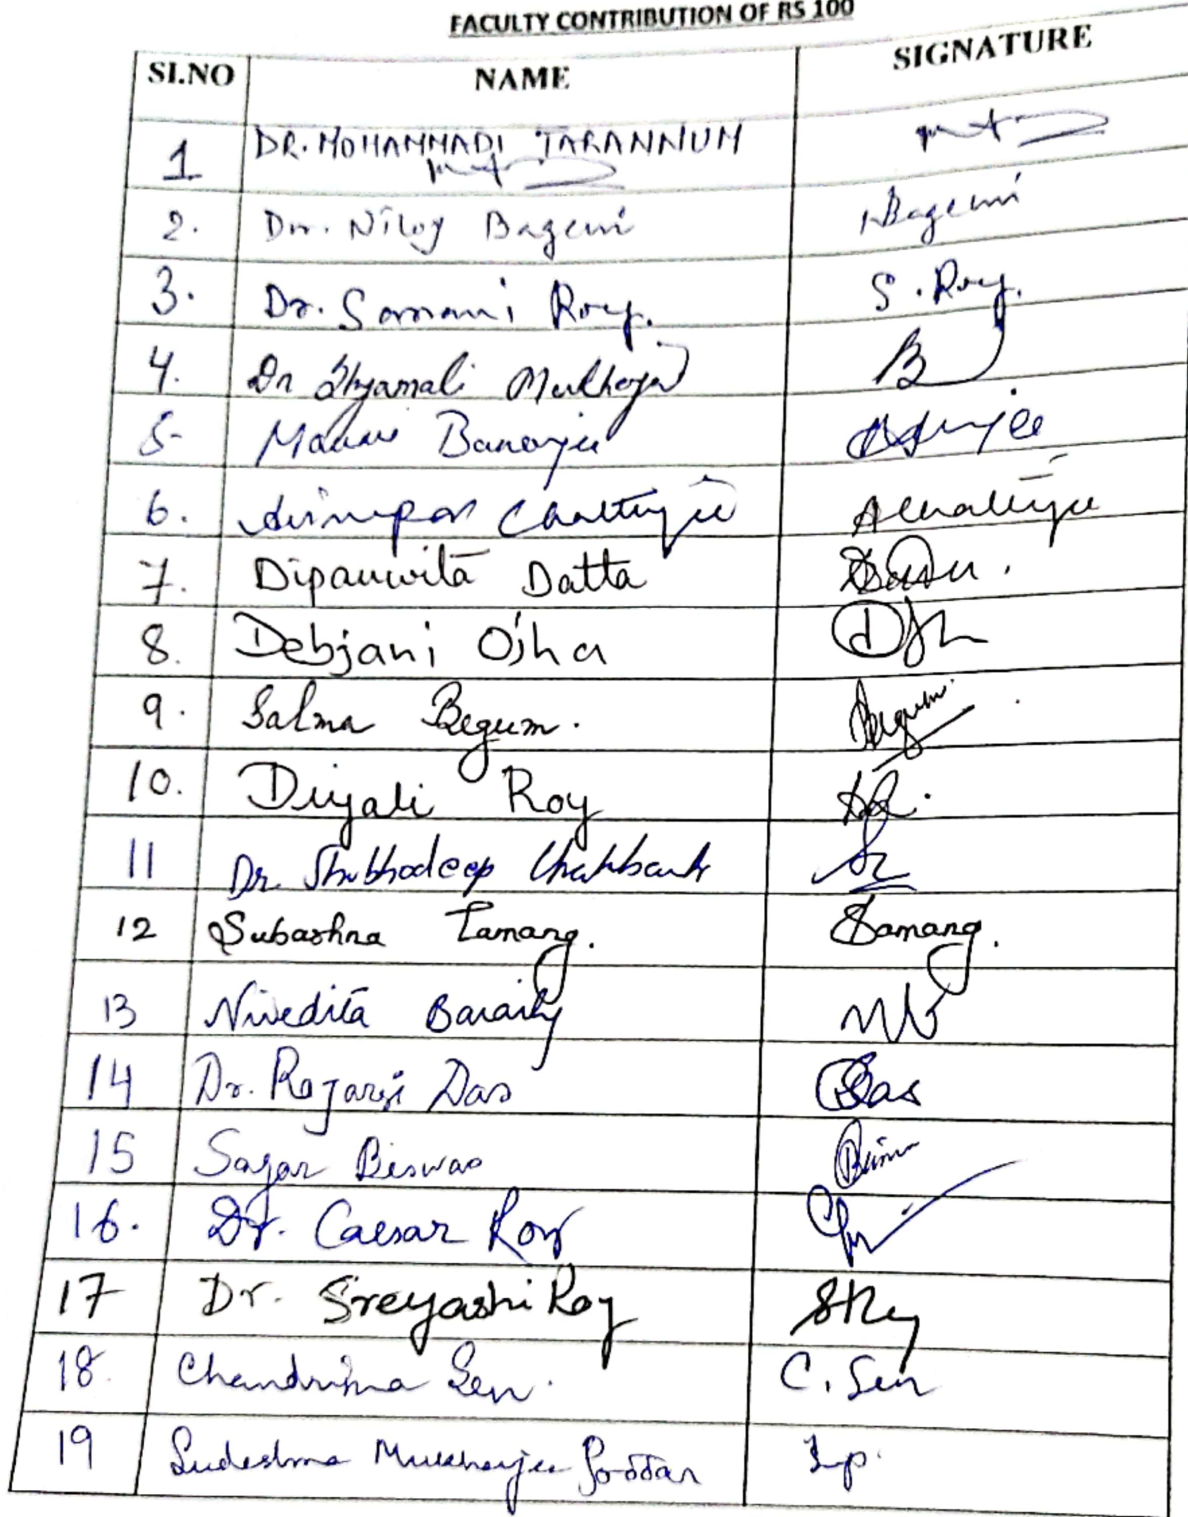 FACULTY CONTRIBUTION OF RS 100
SI.NO NAME SIGNATURE
1 DR. MOHAMMADI TARANNUM
2. Dr. Niloy Bagchi
3. Dr. Somani Roy. S. Roy.
4. Dr Shyamali Mukherjee
5- Banerjee
6. Chatterjee AChatterjee
7. Dipanwita Datta
8. Debjani Ojha
9. Salma Begum. Begum
10. Diyali Roy
11 Dr. Shubhadeep Chakbank
12 Subashna Tamang. Tamang.
13 Nivedita Baraily NB
14 Dr. Rajarsi Das Das
15 Sagar Biswas
16. Dr. Caesar Roy
17 Dr. Sreyashi Roy SRoy
18. Chandrima Sen. C. Sen
19 Sudeshna Mukherjee Poddar